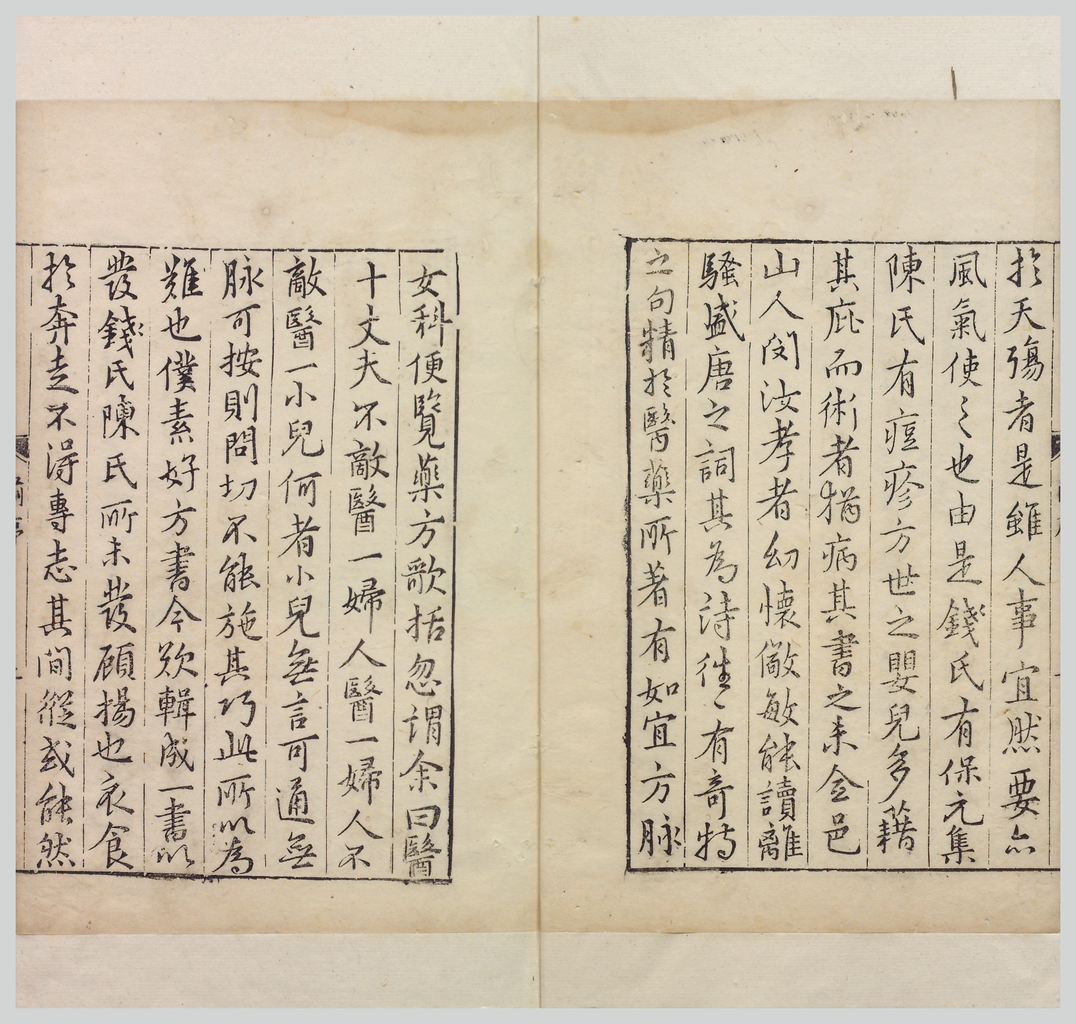 扵夭殤者是雖人事宜然要亦
風氣使之也由是錢氏有保元集
陳氏有痘疹方世之嬰兒多藉
其庇而術者猶病其書之未全邑
山人闵汝孝者幻懷儆敏能讀離
騷盛唐之詞其為詩往〻有奇特
之句精扵醫藥所著有如宜方脉
女科便覽藥方歌括忽謂余曰醫
十丈夫不敵醫一婦人醫一婦人不
敵醫一小兒何者小兒無言可通無
脉可按則問切不能施其巧此所以為
難也僕素好方書今欲輯成一書以
發錢氏陳氏所未發顧揚也衣食
扵奔走不淂專志其間縱或能然